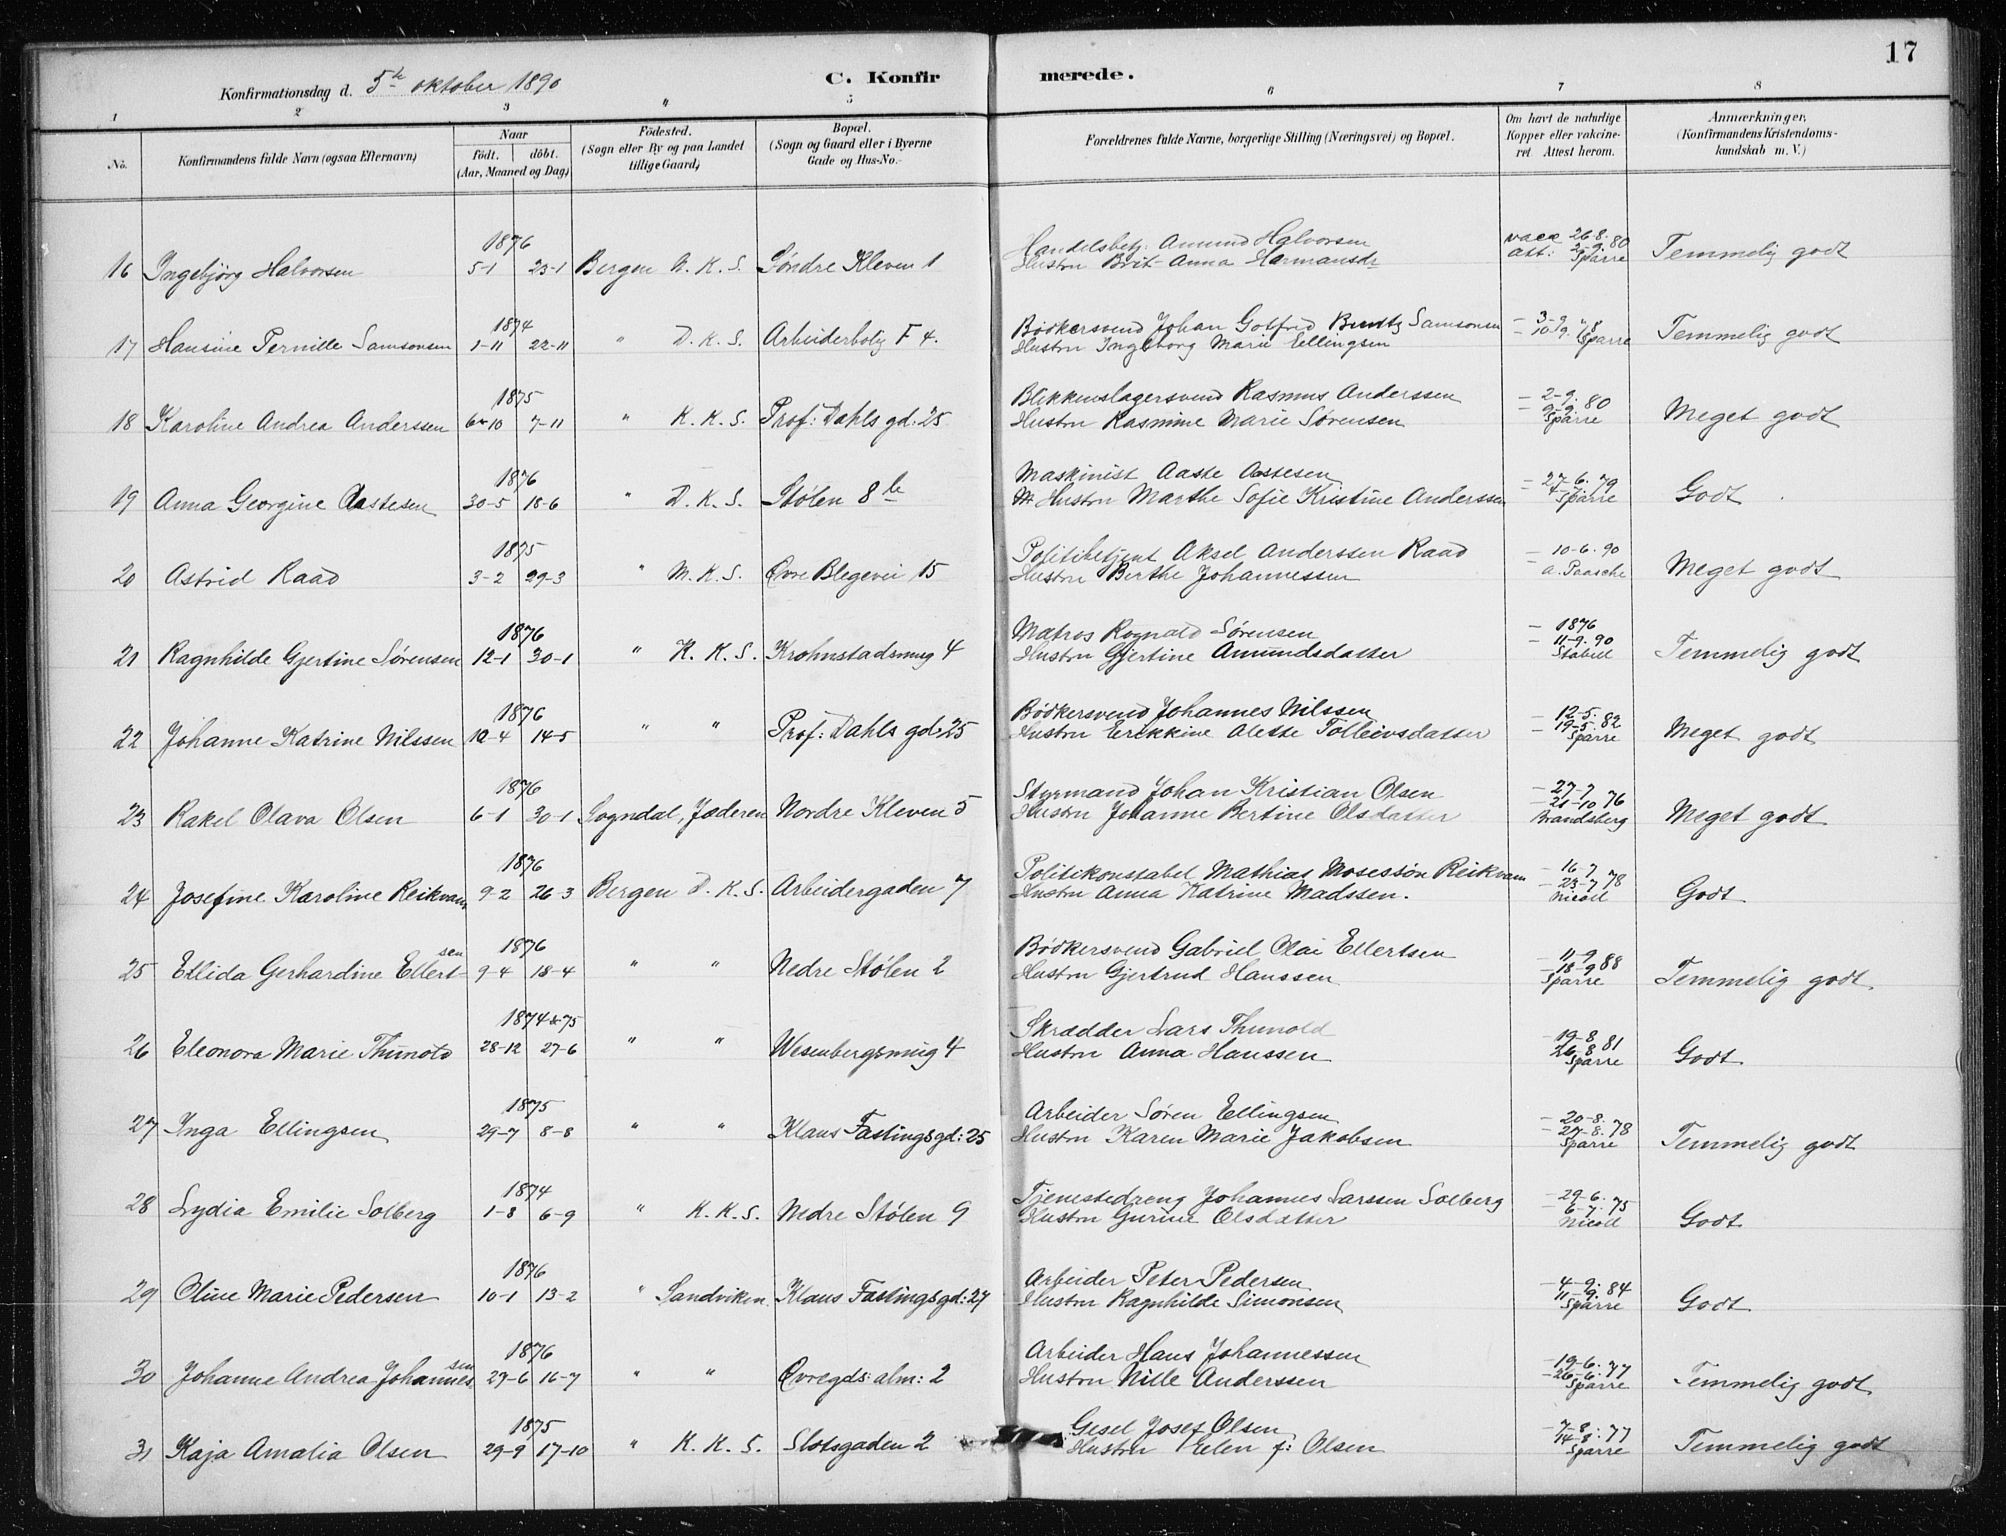 17
Konfirmationsdag d. 5te oktober 1890
C. Konfirmerede.
1 2 3 4 5 6 7 8
No. Konfirmandens fulde Navn (ogsaa Efternavn) Naar födt. döbt. (Aar, Maaned og Dag) Födested. (Sogn eller By og paa Landet tillige Gaard) Bopæl. (Sogn og Gaard eller i Byerne Gade og Hus-No. Forældrenes fulde Navne, borgerlige Stilling (Næringsvei) og Bopæl. Om havt de naturlige Kopper eller vakcineret Attest herom. Anmærkninger, (Konfirmandens Kristendomskundskab m. V.)
1876 Handelsbetj: Amund Halvorsen vacc 26-8-80
16 Ingebjörg Halvorsen 5-1 23-1 Bergen N. K. S. Söndre Kleven 1 Hustru Brit Anna Harmansdr att: 2-9- Sparre Temmelig godt
1874 Bödkersvend Johan Gotfred Bendtz Samsonsen — 3-9
17 Hansine Pernille Samsonsen 1-11 22-11 " D. K. S. Arbeiderbolg F 4. Hustru Ingeborg Marie Ellingsen — 10-9. 78 Sparre Temmelig godt
1875 Blikkenslagersvend Rasmus Anderssen — 2-9-80
18 Karoline Andrea Anderssen 6-10 7-11 " K. K. S. Prof: Dahls gd: 25 Hustru Rasmine Marie Sørensen — 9-9- Sparre Meget godt
1876 Maskinist Aaste Aastesen — 27-6.79
19 Anna Georgine Aastesen 30-5 18-6 " D. K. S. Stølen 8 b Hustru Marthe Sofie Kristine Anderssen — 4-7- Sparre Godt.
1875 Politibetjent Aksel Anderssen Raad — 10-6.90
20 Astrid Raad 3-2 29-3 " M. K. S. Øvre Blegevei 15 Hustru Berthe Johannessen — A. Paasche Meget godt
1876 Matros Rognald Sørensen — 1876
21 Ragnhilde Gjertine Sørensen 12-1 30-1 " K. K. S. Krohnstadsmug 4 Hustru Gjertine Amundsdatter — 11-9.90 Stabell Temmelig godt
1876 Bödkersvend Johannes Nilssen — 12-5.82
22 Johanne Katrine Nilssen 10-4 14-5 " " Prof: Dahls gd: 25 Hustru Erikkine Alette Tolleivsdatter — 19-5. Sparre Meget godt
1876 Styrmand Johan Kristian Olsen — 27-7
23 Rakel Olava Olsen 6-1 30-1 Sogndal, Jæderen Nordre Kleven 5 Hustru Johanne Bertine Olsdatter — 21-10 76 Brandsberg Meget godt
1876 Politikonstabel Mathias Mosessön Reikvam — 16-7
24 Josefine Karoline Reikvam 9-2 26-3 Bergen D. K. S. Arbeidergaden 7 Hustru Anna Katrine Madssen. — 23-7 78 Nicoll Godt.
1876 Bödkersvend Gabriel Olai Ellertsen — 11-9
25 Ellida Gerhardine Ellertsen 9-4 18-4 " " Nedre Stølen 2 Hustru Gjertrud Hanssen — 18-9 88 Sparre Temmelig godt
1874 & 75 Skrædder Lars Thunold — 19-8
26 Eleonora Marie Thunold 28-12 27-6 " " Wesenbergsmug 4 Hustru Anna Hanssen 26-8 81 Sparre Godt
1875 Arbeider Søren Ellingsen — 20-8.
27 Inga Ellingsen 29-7 8-8 " " Klaus Fastings gd: 25 Hustru Karen Marie Jakobsen — 27-8.78 Sparre Temmelig godt
1874 Tjenestedreng Johannes Larssen Solberg — 29-6.
28 Lydia Emilie Solberg 1-8 6-9 " K. K. S. Nedre Stølen 9 Hustru Gurine Olsdatter — 6-7.75 Nicoll Godt
1876 Arbeider Peter Pedersen — 4-9-
29 Oline Marie Pedersen 10-1 13-2 " Sandviken Klaus Fastings gd: 27 Hustru Ragnhilde Simonsen 11-9. 84 Sparre Godt
1876 Arbeider Hans Johannessen — 19-6.
30 Johanna Andrea Johannessen 27-6 16-7 " " Øvregds: alm: 2 Hustru Nille Anderssen — 26-6.77 Sparre Temmelig godt
1875 Gesel Josef Olsen — 7-8.
31 Kaja Amalia Olsen 29-9 17-10 " K. K. S. Slotsgaden 2 Hustru Elen f: Olsen 14-8.77 Sparre Temmelig godt